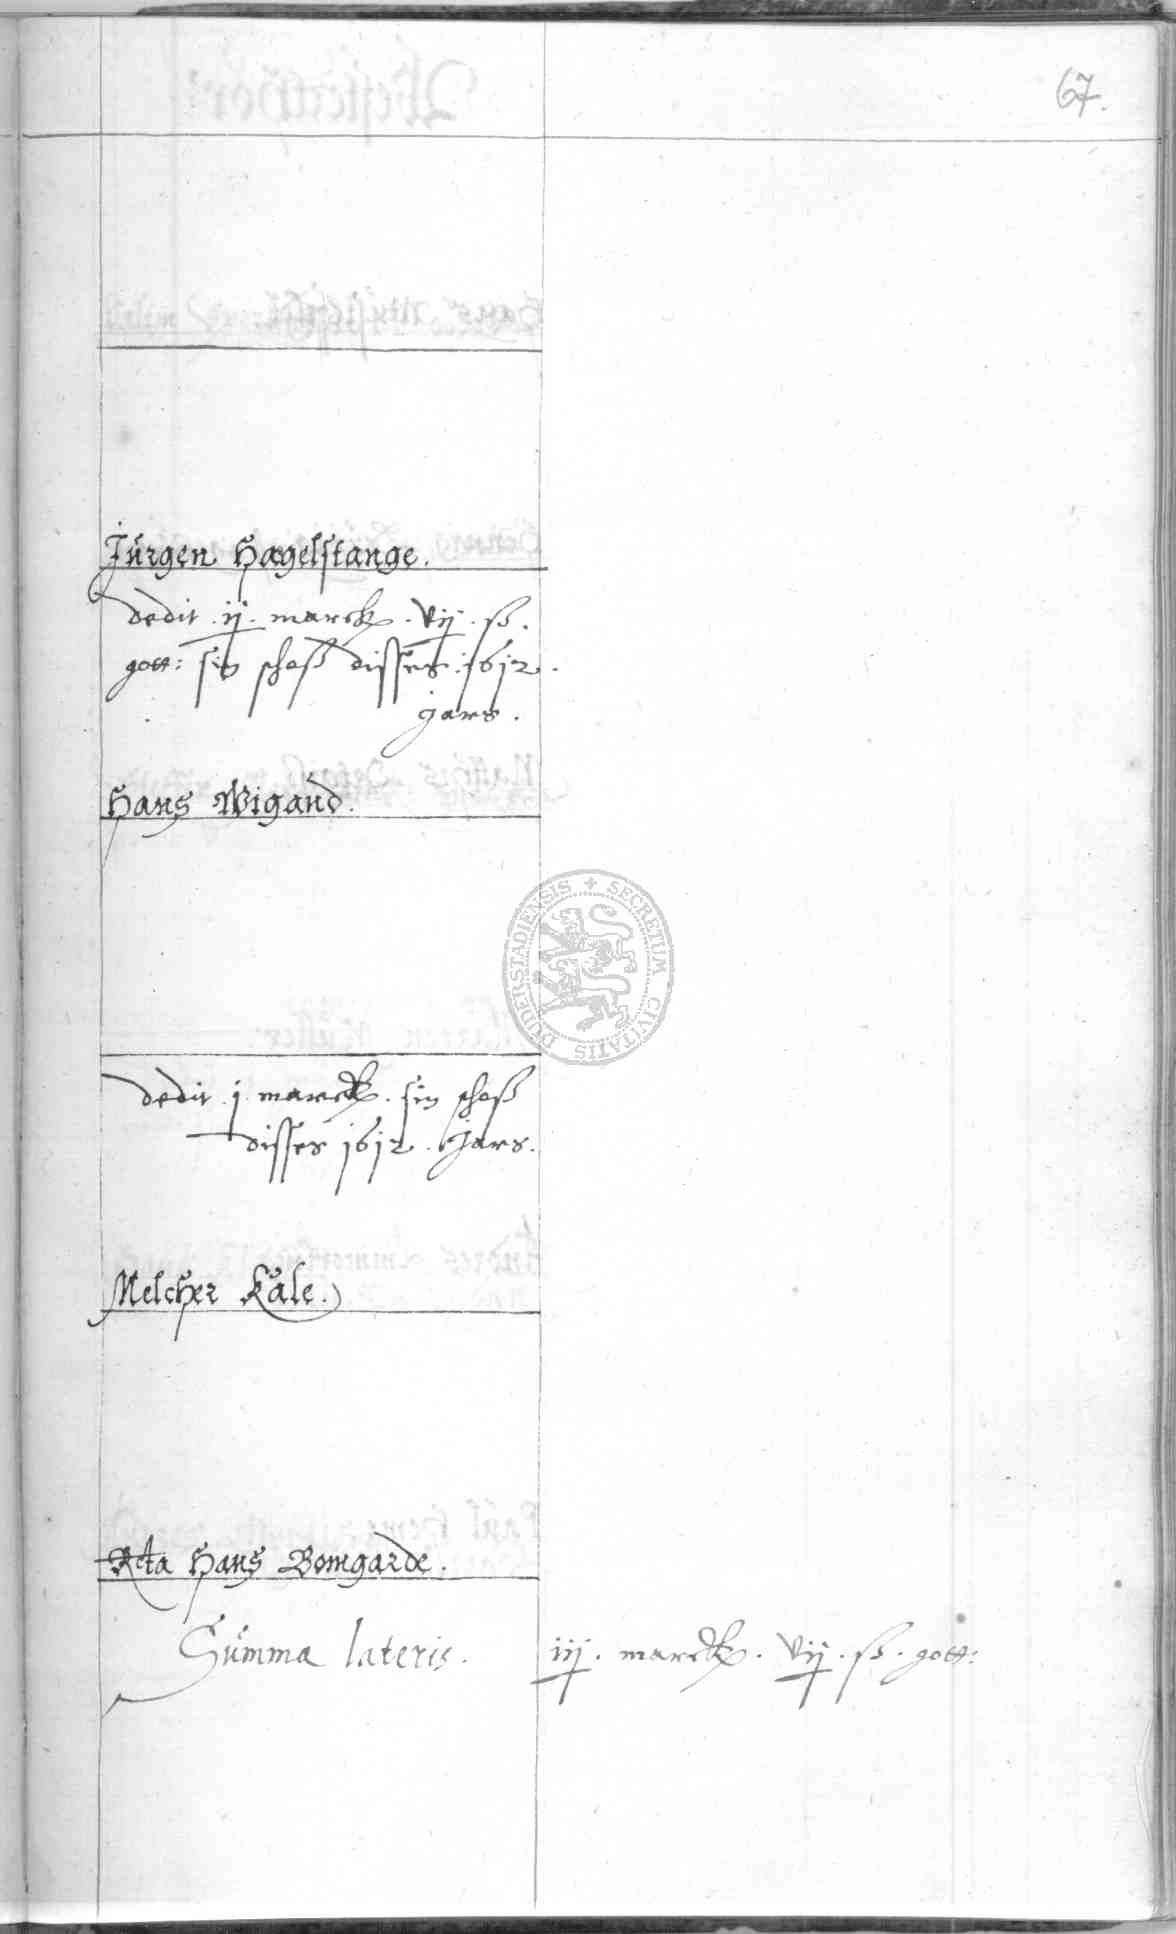 67.
Jürgen Hagelstange.
dedit . ij . marck . vij . ß .
gott: sin schoß disses . 1612 .
jars .
Hans Wigand.
SECRETUM CIVITATIS DUDERSTADIENSIS
dedit . j . marck . sin schoß
disses 1612 . Jars .
Melcher Kale.
Hans Bomgarde .
Summa lateris . iij . marck . vij . ß . gott: